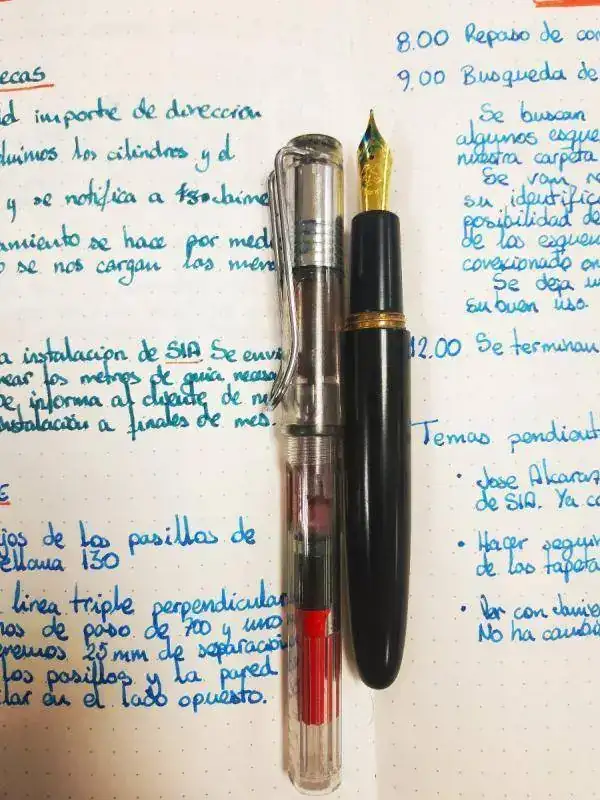 ecas
importe de dirección
los cilindros y d
y se notifica a Jaime
amiento se hace por med
o se nos cargan las mer
a instalación de SIA Se envi
los metros de guia necesa
informa al cliente de
instalación a finales de mes.
E
jos de los pasillos de
ellana 130
linea triple perpendicular
nos de paso de 700 y uno
eremos 25 mm de separació
los pasillos y la pared
lar en el lado opuesto.
8.00 Repaso de cor
9.00 Busqueda de
Se buscan
algunos esque
nuestra carpeta
Se van re
su identific
posibilidad de
de los esquem
covexionado
Se deja
su buen uso.
12.00 Se terminan
Temas pendient
• Jose Alcaraz
de SIA. Ya co
• Hacer segui
de los tapeta
• Ver con Javie
No ha cambi